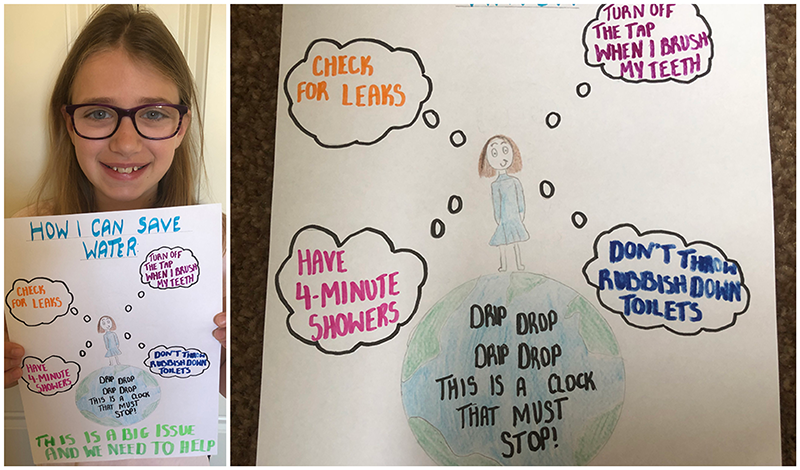 HOW I CAN SAVE
WATER
TURN OFF
THE TAP
WHEN I BRUSH
MY TEETH
CHECK
FOR LEAKS
HAVE
4-MINUTE
SHOWERS
DON'T THROW
RUBBISH DOWN
TOILETS
DRIP DROP
DRIP DROP
THIS IS A CLOCK
THAT MUST
STOP!
THIS IS A BIG ISSUE
AND WE NEED TO HELP
TURN OFF
THE TAP
WHEN I BRUSH
MY TEETH
CHECK
FOR LEAKS
HAVE
4-MINUTE
SHOWERS
DON'T THROW
RUBBISH DOWN
TOILETS
DRIP DROP
DRIP DROP
THIS IS A CLOCK
THAT MUST
STOP!